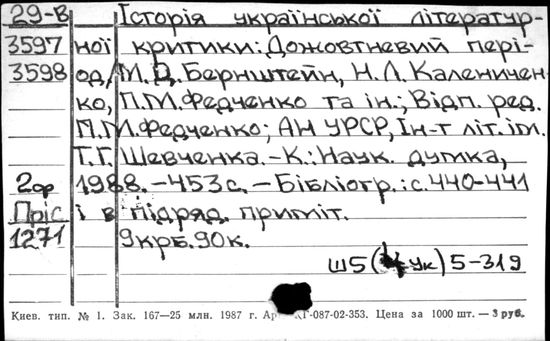 29-В Історія української літератур-
3597 ної критики: Дожовтневий пері-
3598 од/М.Д. Бернштейн, Н.Л. Каленичен-
ко, П.М. Федченко та ін.; Відп. ред.
П.М. Федченко; АН УРСР, Ін-т літ. ім.
Т.Г. Шевченка. - К.: Наук. думка,
2ор 1988. - 453 с. - Бібліогр.: с. 440-441
Пріс і в підряд. приміт.
1271 9крб. 90к.
Ш5( Ук) 5-319
Киев. тип. № 1. Зак. 167—25 млн. 1987 г. Ар КГ-087-02-353. Цена за 1000 шт. — 3 руб.